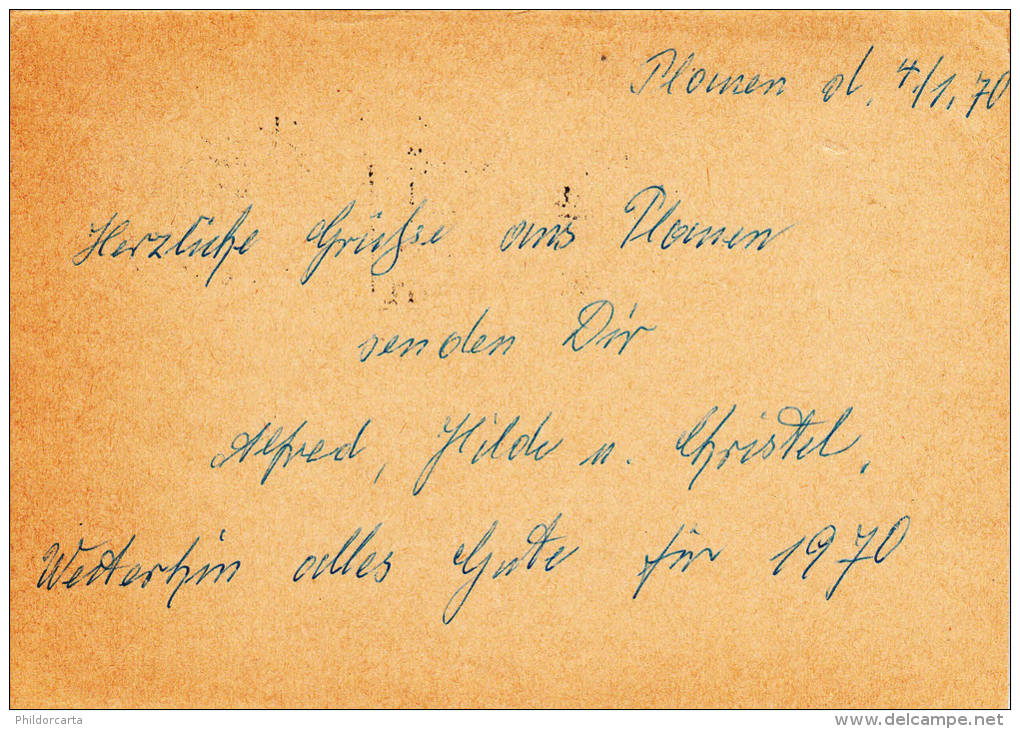 Plauen d. 4./1. 70
Herzliche Grüße aus Plauen
senden Dir
Alfred, Hilde u. Christel.
Weiterhin alles Gute für 1970
Phildorcarta
www.delcampe.net